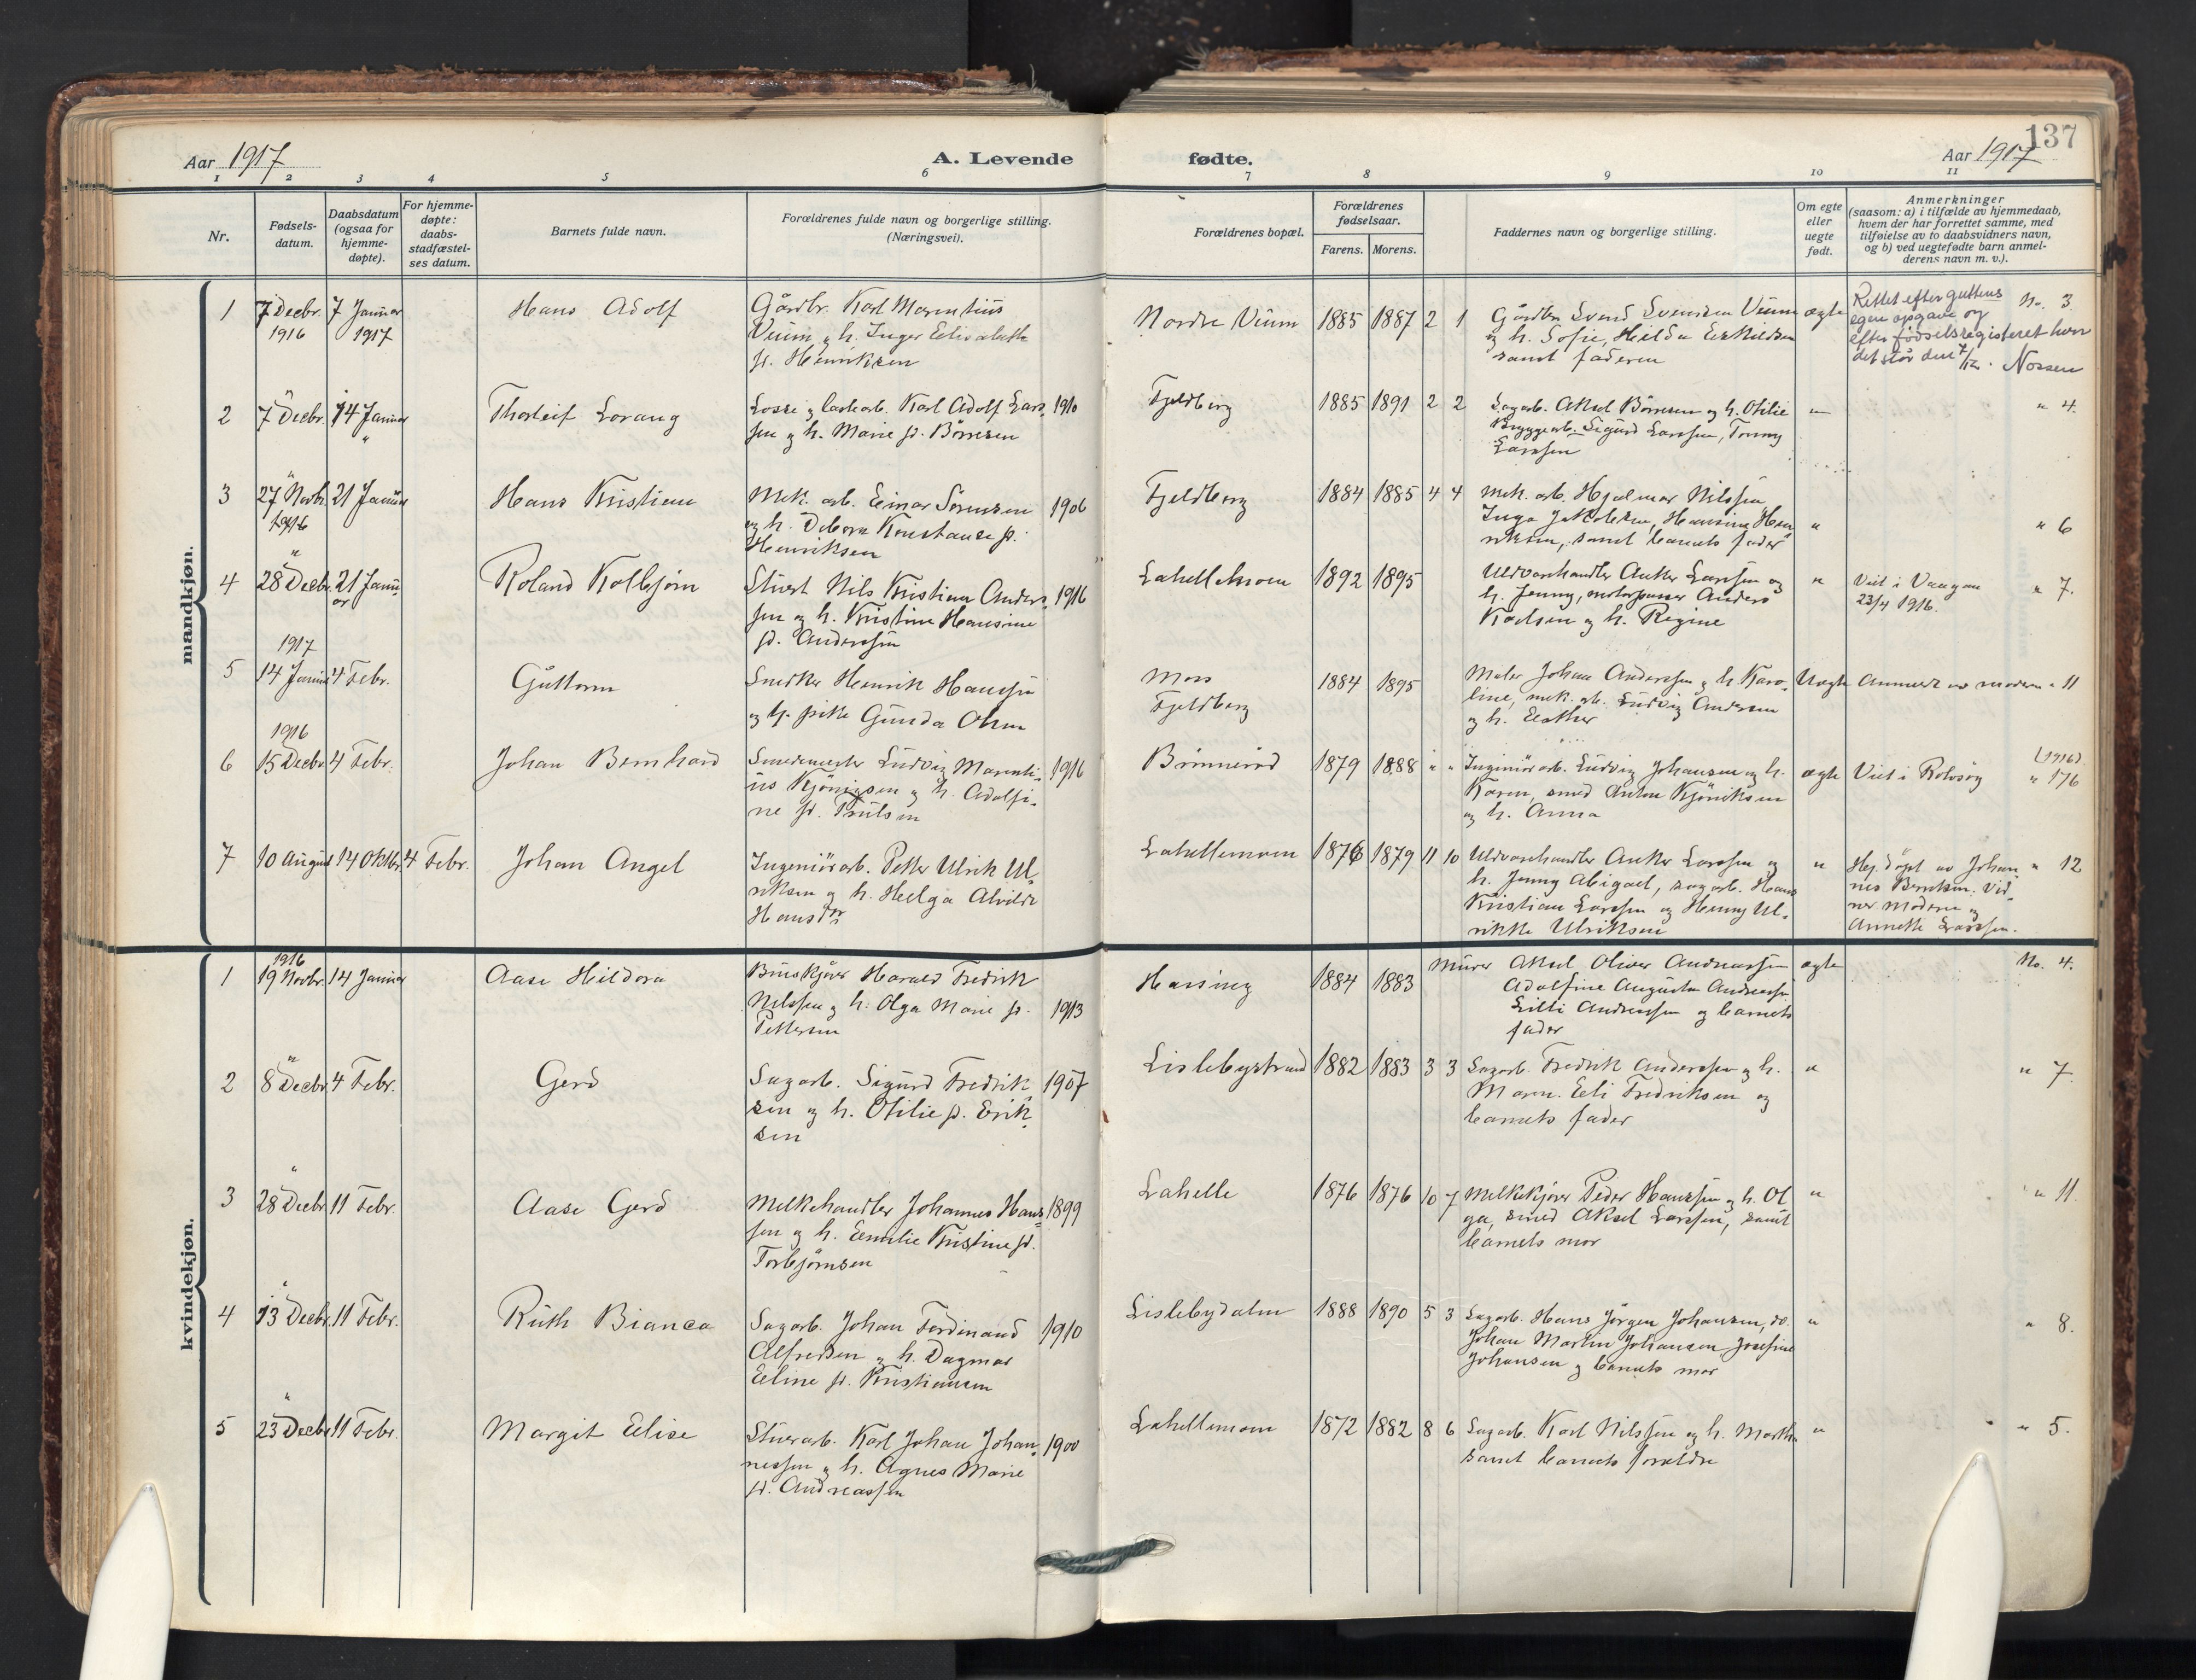 137
Aar 1917
A. Levende
fødte.
Aar 1917
1 2 3 4 5 6 7 8 9 10 11
Nr.
Fødsels-
datum.
Daabsdatum
(ogsaa for
hjemme-
døpte).
For hjemme-
døpte:
daabs-
stadfæstel-
ses datum.
Barnets fulde navn.
Forældrenes fulde navn og borgerlige stilling.
(Næringsvei).
Forældrenes bopæl.
Forældrenes
fødselsaar.
Farens. Morens.
Faddernes navn og borgerlige stilling.
Om egte
eller
uegte
født.
Anmerkninger
(saasom: a) i tilfælde av hjemmedaab,
hvem der har forrettet samme, med
tilføielse av to daabsvidners navn,
og b) ved uegtefødte barn anmel-
derens navn m. v.).
mandkjøn.
1 7 Decbr. 1916
7 Januar 1917
Hans Adolf
Gårdbr. Karl Marentius
Veum og h. Inger Elisabeth
f. Henriksen
Nordre Veum 1885 1887 2 1
Gårdbr. Svend Svendsen Veum
og h. Sofie, Hilda Eskildsen
samt faderen
ægte
Rettet efter guttens
egen opgave og
efter fødselsregisteret hvor
det står den 7/12. Nossen
No. 3
2 7 Decbr. 14 Januar "
Thorleif Lorang
Losse og lastearb. Karl Adolf Lars-
sen og h. Marie f. Børresen
1910
Fjeldberg 1885 1891 2 2
Sagarb. Aksel Børresen og h. Otilie
Bryggearb. Sigurd Larssen, Tommy
Larssen
"
" 4.
3 27 Novb. 1916
21 Januar
Hans Kristian
Mek. arb. Einar Sørensen
og h. Debora Konstanse f.
Henriksen
1906
Fjeldberg 1884 1885 4 4
Mek. arb. Hjalmar Nilssen
Inga Jakobsen, Hansine Hen-
riksen, samt barnets fader
"
" 6
4 28 Decbr. 21 Janu-
ar
Roland Kolbjørn
Stuert Nils Kristian Anders-
sen og h. Kristine Hansine
f. Anderssen
1916
Lahellemoen 1892 1895
Uldvarehandler Anker Larssen og
h. Jenny, motorpasser Anders
Karlsen og h. Regine
"
Viet i Vaagan
23/4 1916.
" 7.
1917
5 14 Januar 4 Febr.
Guttorm
Snedker Henrik Hanssen
og pike Gunda Olsen
Moss
Fjeldberg
1884 1895
Maler Johan Anderssen og h. Karo-
line, mek. arb. Ludvig Andersen
og h. Esther
Uægte
Anmeldt av moderen " 11
1916
6 15 Decbr. 4 Febr.
Johan Bernhard
Smedmester Ludvig Marenti-
us Kjønigsen og h. Adolfi-
ne f. Trulsen
1916
Brønnerød 1879 1888 " "
Ingeniørarb. Ludvig Johansen og h.
Karen, smed Anton Kjøniksen
og h. Anna
ægte
Viet i Rolvsøy
(1916).
" 176
7 10 August 14 Oktbr. 4 Febr.
Johan Angel
Ingeniørarb. Petter Ulrik Ul-
riksen og h. Helga Alvilde
Hansdr
Lahellemoen 1876 1879 11 10
Uldvarehandler Anker Larssen og
h. Jenny Abigael, sagarb. Hans
Kristian Larssen og Henny Ul-
rikke Ulriksen
"
Hj. døpt av Johan-
nes Berntsen. Vid-
ner. Moderen og
Annette Larssen.
" 12
kvindekjøn.
1916
1 19 Novbr. 14 Januar
Aase Heldora
Bruskjører Harald Fredrik
Nilssen og h. Olga Marie f.
Pettersen
1913
Hassing 1884 1883
Murer Aksel Oliver Andreassen
Adolfine Augusta Andreassen
Lilli Andreassen og barnets
fader
ægte
No. 4.
2 8 Decbr. 4 Febr.
Gerd
Sagarb. Sigurd Fredrik-
sen og h. Otilie f. Erik-
sen
1907
Lislebystrand 1882 1883 3 3
Sagarb. Fredrik Anderssen og h.
Maren. Eli Fredriksen og
barnets fader
"
" 7.
3 28 Decbr. 11 Febr.
Aase Gerd
Melkehandler Johannes Hans-
sen og h. Emilie Kristine f.
Torbjørnsen
1899
Lahelle 1876 1876 10 7
Melkekjører Peder Hanssen og h. Ol-
ga, smed Aksel Larssen, samt
barnets mor
"
" 11.
4 13 Decbr. 11 Febr.
Ruth Bianca
Sagarb. Johan Ferdinand
Alfredsen og h. Dagmar
Eline f. Kristiansen
1910
Lislebydalen 1888 1890 5 3
Sagarb. Hans Jørgen Johansen, do.
Johan Martin Johansen Josefine
Johansen og barnets mor
"
" 8.
5 23 Decbr. 11 Febr.
Margit Elise
Stuerarb. Karl Johan Johan-
nessen og h. Agnes Marie
f. Andreassen
1900
Lahellemoen 1872 1882 8 6
Sagarb. Karl Nilssen og h. Martha
samt barnets forældre
"
" 5.